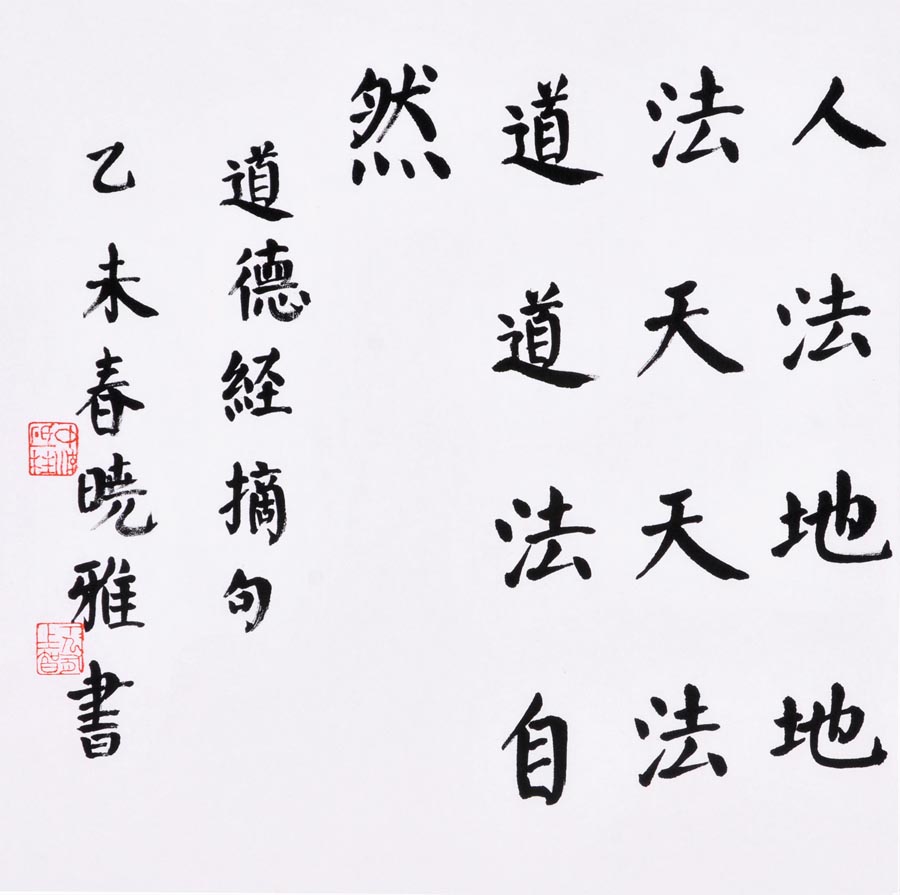 人法地地
法天天法
道道法自
然
道德経摘句
乙未春曉雅書